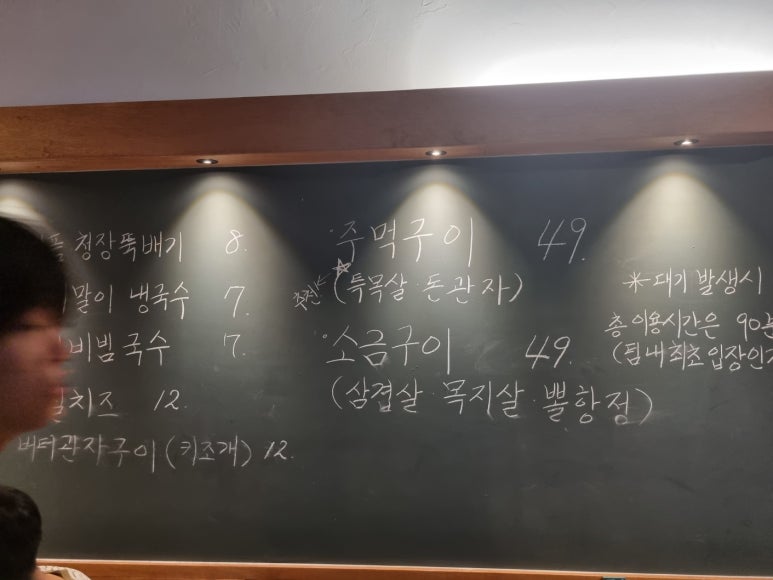 청장뚝배기 8.
말이 냉국수 7.
비빔국수 7.
치즈 12.
버터관자구이 (키조개) 12.
주먹구이 49.
추천 (특목살·돈관자)
소금구이 49.
(삼겹살·목지살·뽈항정)
* 대기 발생시
총 이용시간은 90분
(팀내 최초 입장인